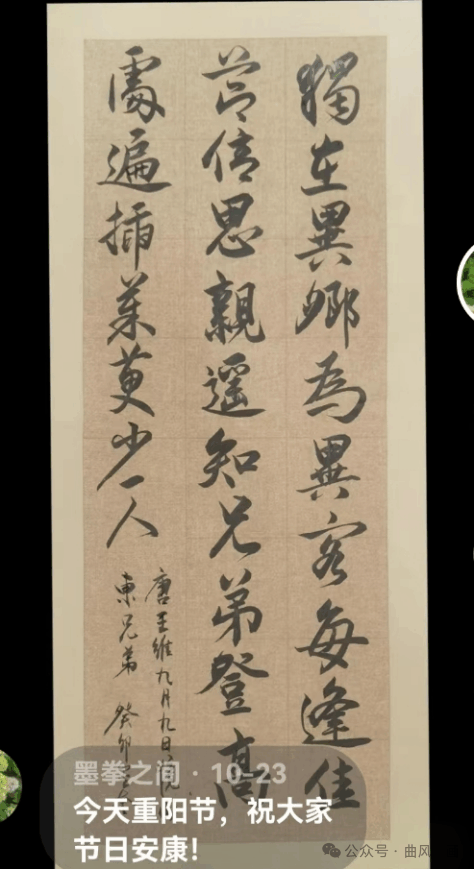 獨在異鄉為異客每逢佳
節倍思親遥知兄弟登高
處遍插茱萸少一人
唐王維九月九日
東兄弟 癸卯
墨拳之间 · 10-23
今天重阳节，祝大家
节日安康!
公众号 · 曲风